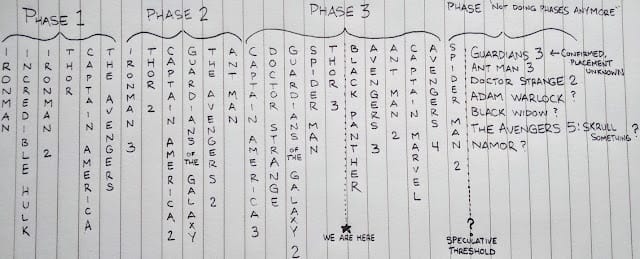 PHASE 1
IRONMAN
INCREDIBLE HULK
IRONMAN 2
THOR
CAPTAIN AMERICA
THE AVENGERS
PHASE 2
IRONMAN 3
THOR 2
CAPTAIN AMERICA 2
GUARDIANS OF THE GALAXY
THE AVENGERS 2
ANT MAN
PHASE 3
CAPTAIN AMERICA 3
DOCTOR STRANGE
GUARDIANS OF THE GALAXY 2
SPIDER MAN
THOR 3
BLACK PANTHER
AVENGERS 3
ANT MAN 2
CAPTAIN MARVEL
AVENGERS 4
WE ARE HERE
PHASE "NOT DOING PHASES ANYMORE"
SPIDER MAN 2
GUARDIANS 3 ← CONFIRMED, PLACEMENT UNKNOWN
ANT MAN 3
DOCTOR STRANGE 2
ADAM WARLOCK?
BLACK WIDOW?
THE AVENGERS 5: SKRULL SOMETHING?
NAMOR?
?
SPECULATIVE
THRESHOLD